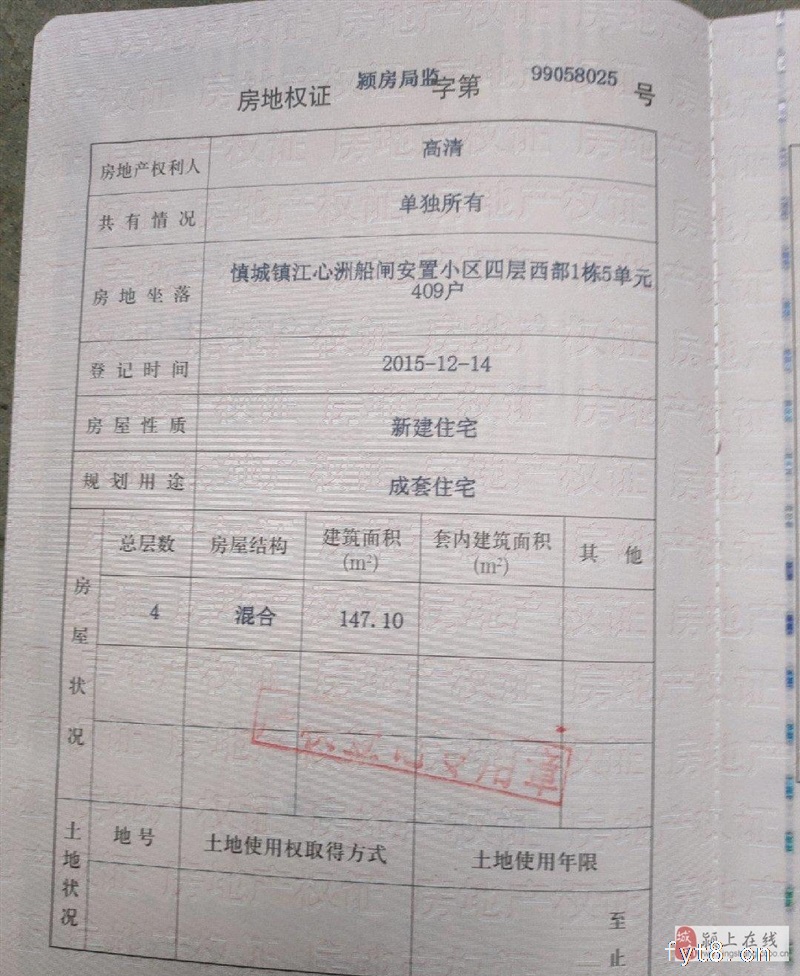 房地权证 颍房局监字第 99058025 号
房地产权利人 高清
共有情况 单独所有
房地坐落 慎城镇江心洲船闸安置小区四层西部1栋5单元
409户
登记时间 2015-12-14
房屋性质 新建住宅
规划用途 成套住宅
房屋状况
总层数 房屋结构 建筑面积 套内建筑面积 其他
(m²) (m²)
4 混合 147.10
专用章
土地状况
地号 土地使用权取得方式 土地使用年限
至
止
城 颍上在线
fyt8.cn